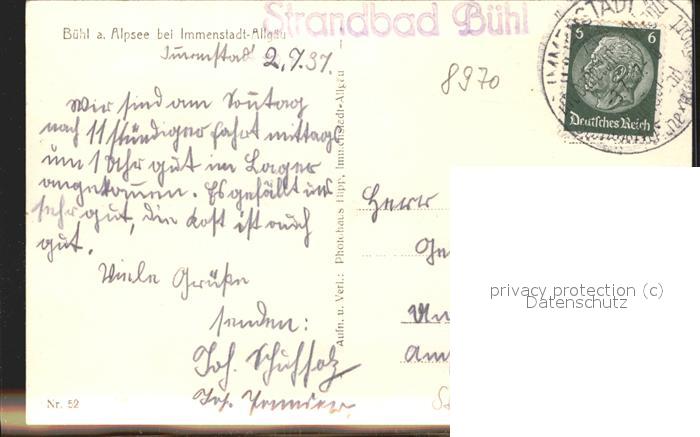 Strandbad Bühl
Bühl a. Alpsee bei Immenstadt-Allgäu
Immenstadt 2.7.37.
8970
IMMENSTADT
5 6
Deutsches Reich
Wir sind am Sonntag
nach 11 stündiger Fahrt mittags
um 1 Uhr gut im Lager
angekommen. Es gefällt uns
sehr gut, die Kost ist auch
gut.
Viele Grüße
senden:
Joh. Schuhholz
Joh.
Aufn. u. Verl.: Photohaus Hipp, Immenstadt-Allgäu
Herr
Ge
Un
Am
Nr. 52
privacy protection (c)
Datenschutz